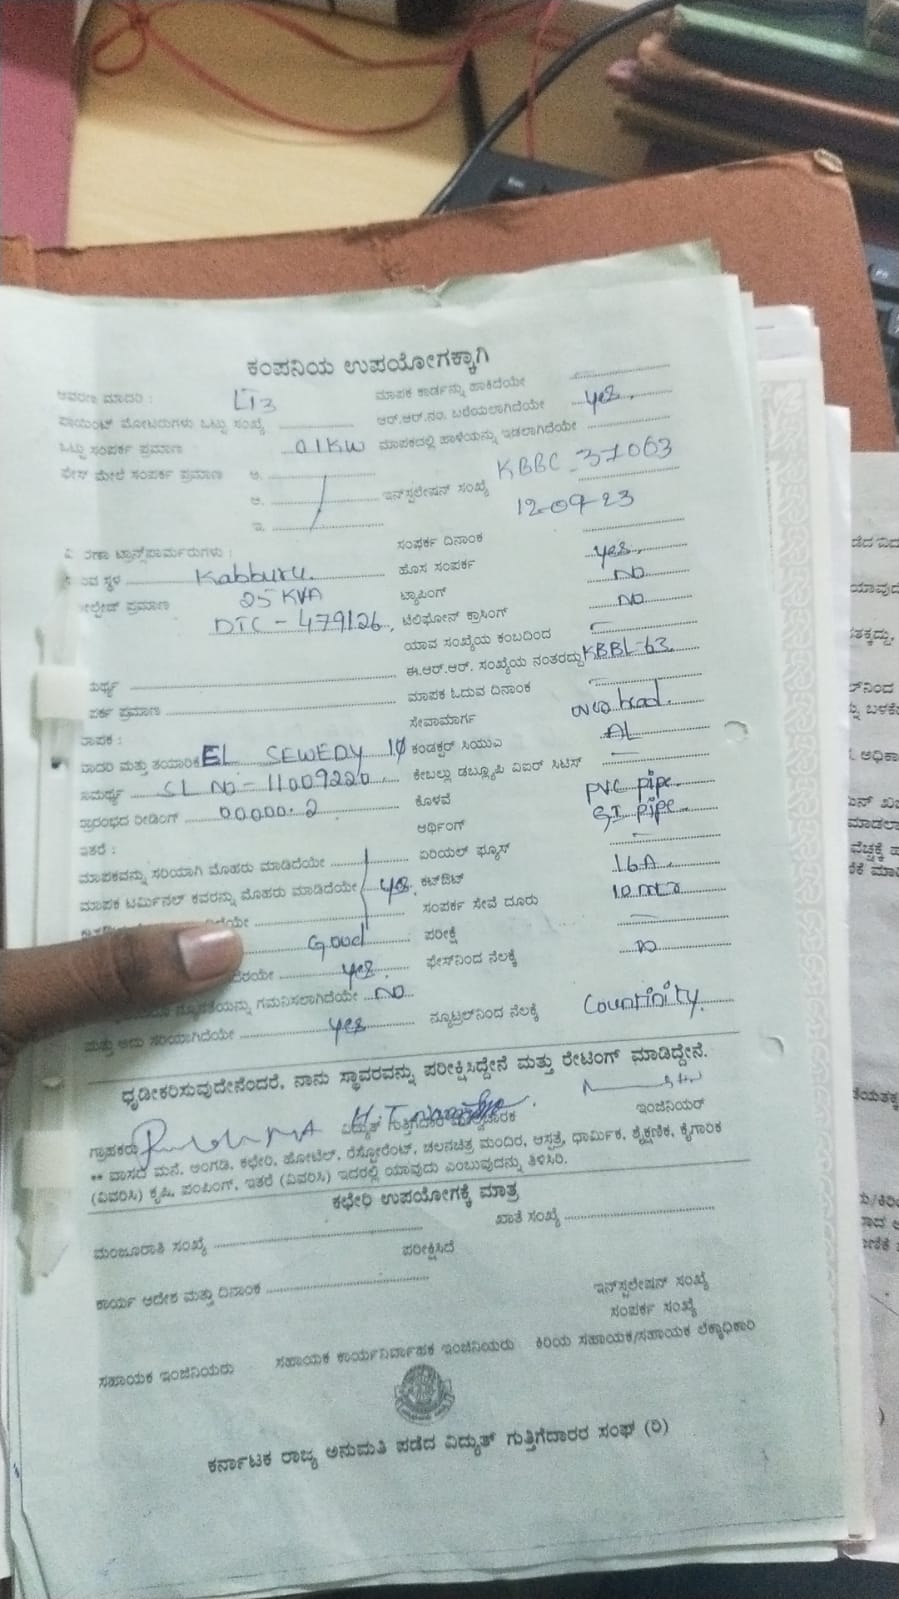 ಕಂಪನಿಯ ಉಪಯೋಗಕ್ಕಾಗಿ
ಆವರಣ ಮಾದರಿ : LT3 ಮಾಪಕ ಕಾರ್ಡನ್ನು ಹಾಕಿದೆಯೇ
ಪಾಯಿಂಟ್ ಮೋಟರುಗಳು ಒಟ್ಟು ಸಂಖ್ಯೆ ಆರ್.ಆರ್.ನಂ. ಬರೆಯಲಾಗಿದೆಯೇ yes.
ಒಟ್ಟು ಸಂಪರ್ಕ ಪ್ರಮಾಣ 01KW ಮಾಪಕದಲ್ಲಿ ಹಾಳೆಯನ್ನು ಇಡಲಾಗಿದೆಯೇ
ಫೇಸ್ ಮೇಲೆ ಸಂಪರ್ಕ ಪ್ರಮಾಣ ಅ. ಇನ್‌ಸ್ಟಲೇಷನ್ ಸಂಖ್ಯೆ KBBC-37063
ಆ. 12-09-23
ಇ. ಸಂಪರ್ಕ ದಿನಾಂಕ
ಟ್ರಾನ್ಸ್‌ಪಾರ್ಮರುಗಳು : ಹೊಸ ಸಂಪರ್ಕ yes.
ಸ್ಥಳ Kabburu. ಟ್ಯಾಪಿಂಗ್ NO
ಪ್ರಮಾಣ 25 KVA ಟೆಲಿಫೋನ್ ಕ್ರಾಸಿಂಗ್ NO
DTC - 479126. ಯಾವ ಸಂಖ್ಯೆಯ ಕಂಬದಿಂದ
ಈ.ಆರ್.ಆರ್. ಸಂಖ್ಯೆಯ ನಂತರದ್ದು KBBL-63
ಮಾಪಕ ಓದುವ ದಿನಾಂಕ
ಪ್ರಮಾಣ ಸೇವಾಮಾರ್ಗ over head
ಮಾದರಿ ಮತ್ತು ತಯಾರಿಕೆ EL SEWEDY 1Φ ಕಂಡಕ್ಟರ್ ಸಿಯುಎ AL
SL NO - 11009220 ಕೇಬಲ್ಲು ಡಬ್ಲ್ಯೂಪಿ ವಿಐರ್ ಸಿಟಿಸ್
ಪ್ರಾರಂಭದ ರೀಡಿಂಗ್ 00000.2 ಕೊಳವೆ PVC pipe
ಇತರೆ : ಆರ್ಥಿಂಗ್ GI pipe
ಮಾಪಕವನ್ನು ಸರಿಯಾಗಿ ಮೊಹರು ಮಾಡಿದೆಯೇ ಏರಿಯಲ್ ಫ್ಯೂಸ್
ಮಾಪಕ ಟರ್ಮಿನಲ್ ಕವರನ್ನು ಮೊಹರು ಮಾಡಿದೆಯೇ yes. ಕಟ್‌ಔಟ್ 16A
ಸಂಪರ್ಕ ಸೇವೆ ದೂರು
Good ಪರೀಕ್ಷೆ
yes. ಫೇಸ್‌ನಿಂದ ನೆಲಕ್ಕೆ
ನ್ಯೂನತೆಯನ್ನು ಗಮನಿಸಲಾಗಿದೆಯೇ NO
ಮತ್ತು ಅದು ಸರಿಯಾಗಿದೆಯೇ yes ನ್ಯೂಟ್ರಲ್‌ನಿಂದ ನೆಲಕ್ಕೆ Countinity.
ಧೃಡೀಕರಿಸುವುದೇನೆಂದರೆ, ನಾನು ಸ್ಥಾವರವನ್ನು ಪರೀಕ್ಷಿಸಿದ್ದೇನೆ ಮತ್ತು ರೇಟಿಂಗ್ ಮಾಡಿದ್ದೇನೆ.
ಗ್ರಾಹಕರು ವಿದ್ಯುತ್ ಗುತ್ತಿಗೆದಾರ ಇಂಜಿನಿಯರ್
** ವಾಸದ ಮನೆ, ಅಂಗಡಿ, ಕಛೇರಿ, ಹೋಟೆಲ್, ರೆಸ್ಟೋರೆಂಟ್, ಚಲನಚಿತ್ರ ಮಂದಿರ, ಆಸ್ಪತ್ರೆ, ಧಾರ್ಮಿಕ, ಶೈಕ್ಷಣಿಕ, ಕೈಗಾರಿಕ
(ವಿವರಿಸಿ) ಕೃಷಿ, ಪಂಪಿಂಗ್, ಇತರೆ (ವಿವರಿಸಿ) ಇದರಲ್ಲಿ ಯಾವುದು ಎಂಬುವುದನ್ನು ತಿಳಿಸಿರಿ.
ಕಛೇರಿ ಉಪಯೋಗಕ್ಕೆ ಮಾತ್ರ
ಮಂಜೂರಾತಿ ಸಂಖ್ಯೆ ಖಾತೆ ಸಂಖ್ಯೆ
ಪರೀಕ್ಷಿಸಿದೆ
ಕಾರ್ಯ ಆದೇಶ ಮತ್ತು ದಿನಾಂಕ ಇನ್‌ಸ್ಟಲೇಷನ್ ಸಂಖ್ಯೆ
ಸಂಪರ್ಕ ಸಂಖ್ಯೆ
ಸಹಾಯಕ ಇಂಜಿನಿಯರು ಸಹಾಯಕ ಕಾರ್ಯನಿರ್ವಾಹಕ ಇಂಜಿನಿಯರು ಕಿರಿಯ ಸಹಾಯಕ/ಸಹಾಯಕ ಲೆಕ್ಕಾಧಿಕಾರಿ
ಕರ್ನಾಟಕ ರಾಜ್ಯ ಅನುಮತಿ ಪಡೆದ ವಿದ್ಯುತ್ ಗುತ್ತಿಗೆದಾರರ ಸಂಘ (ರಿ)